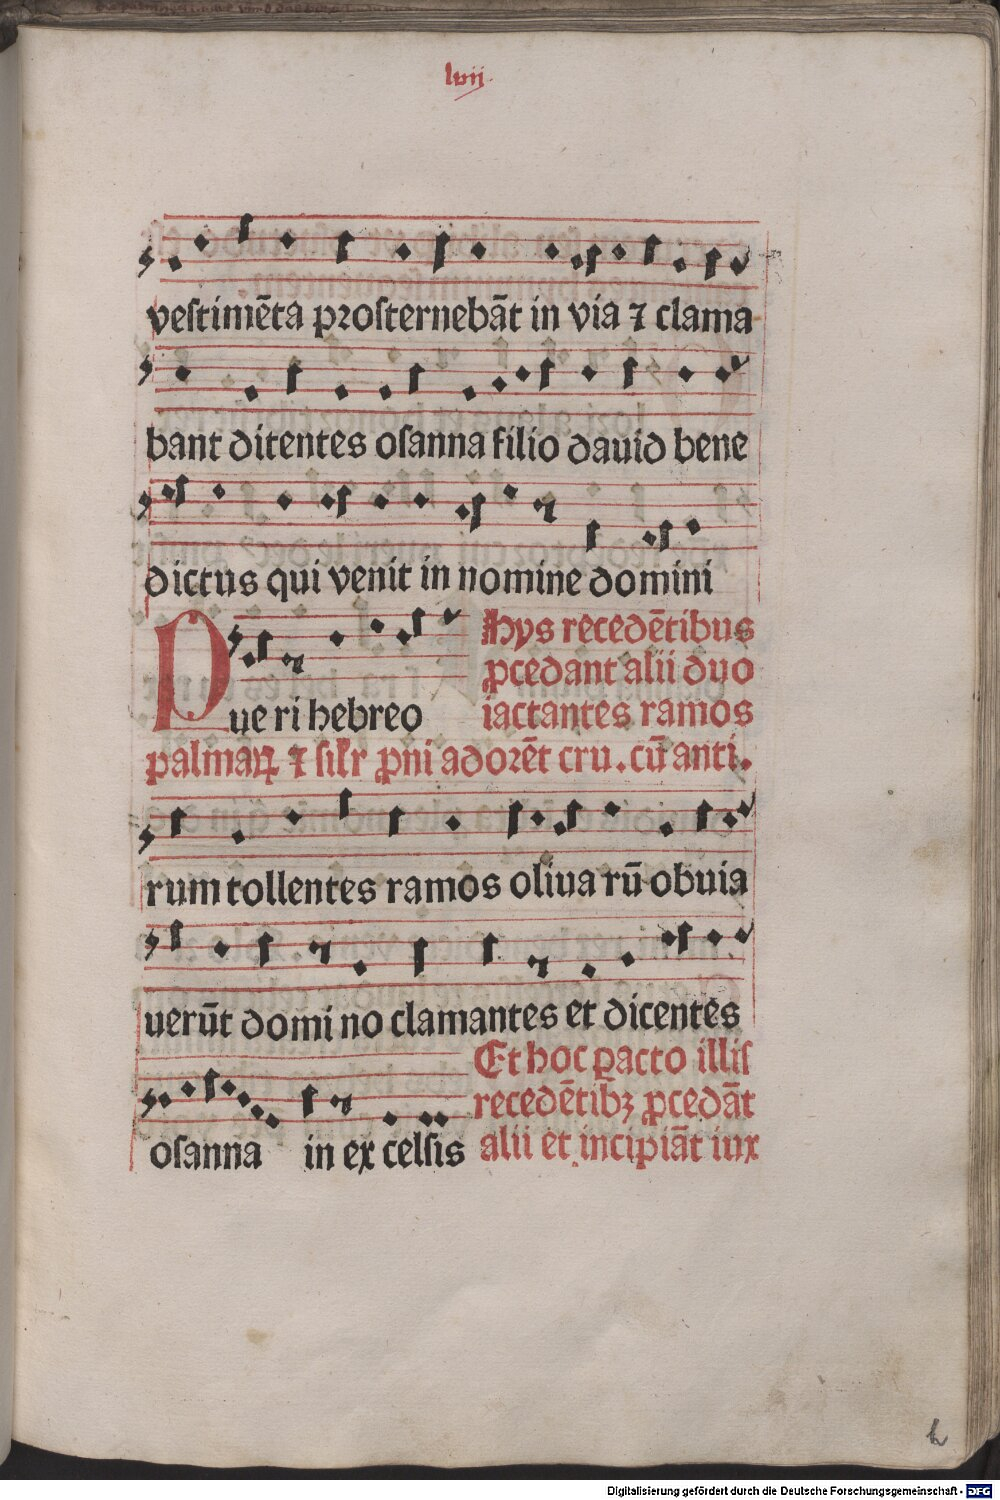 lvij
vestimēta prosternebāt in via ⁊ clama
bant ditentes osanna filio dauid bene
dictus qui venit in nomine domini
Pue ri hebreo
Hys recedētibus
ꝓcedant alii duo
iactantes ramos
palmaꝝ ⁊ silr ꝓni adorēt cru. cū anti.
rum tollentes ramos oliua rū obuia
uerūt domi no clamantes et dicentes
osanna in ex celsis
Et hoc pacto illis
recedētibꝫ ꝓcedāt
alii et incipiāt iux
h
Digitalisierung gefördert durch die Deutsche Forschungsgemeinschaft - DFG